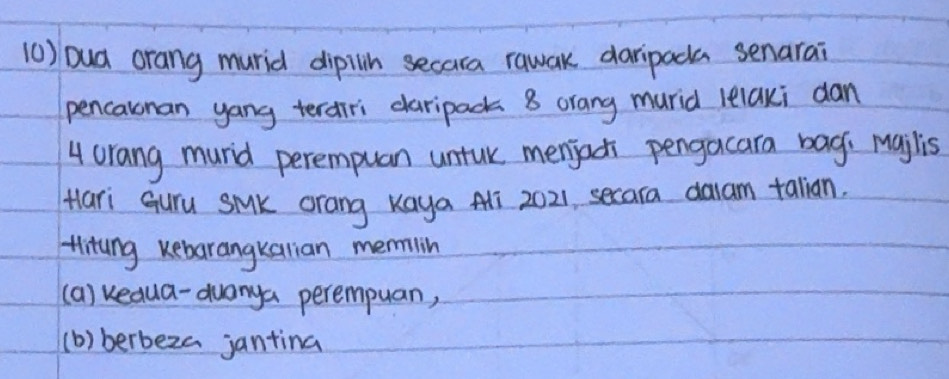 10) Dua orang murid dipilih secara rawak daripada senarai
pencalonan yang terdiri daripada 8 orang murid lelaki dan
4 orang murid perempuan untuk menjadi pengacara bagi Majlis
Hari Guru SMK Orang Kaya Ali 2021 secara dalam talian.
Hitung kebarangkalian memilih
(a) kedua-duanya perempuan,
(b) berbeza jantina